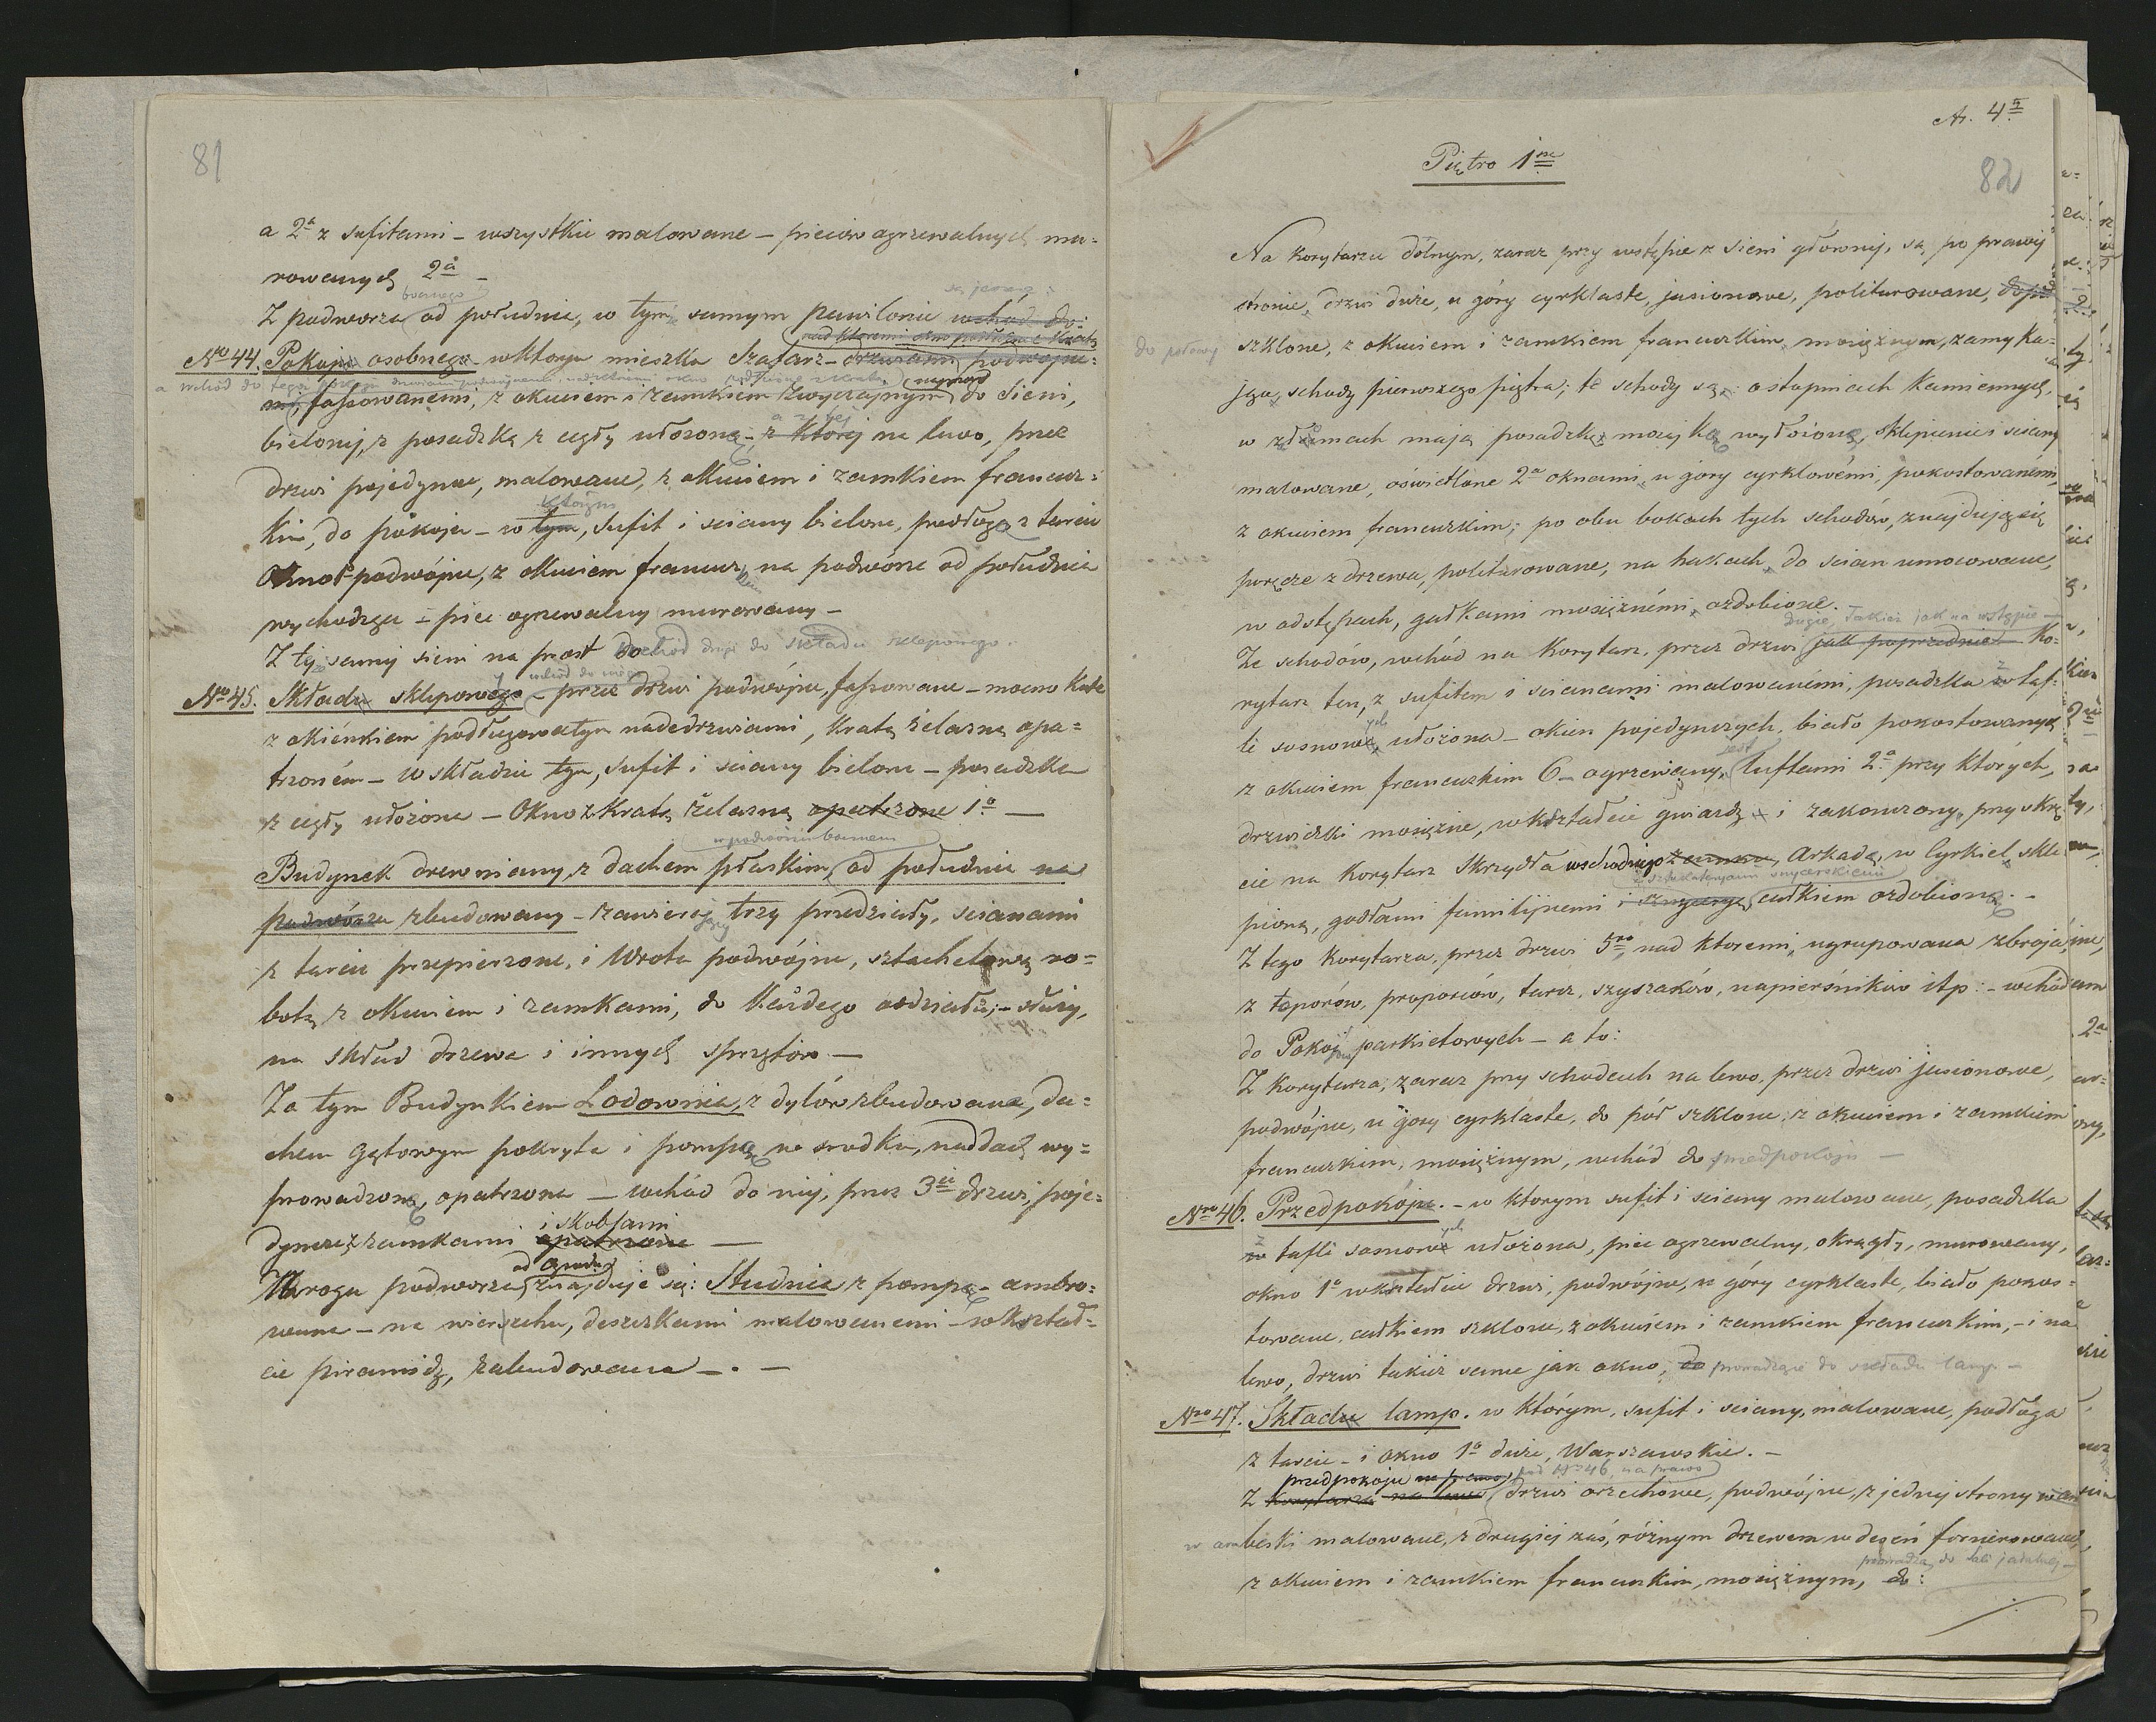 81
a 2ª z sufitami – wszystkie malowane – pieców ogrzewalnych mu=
rowanych 2ª –
bocznego
są jeszcze:
Z podworza od południa, w tym samym pawilonie wchód do:
nad któremi okno podłużne z kratą
Nro 44. Pokoju osobnego w którym mieszka Szafarz – drzwiami podwójne=
a wchód do tegoż drzwiami podwójnemi, nad któremi okno podłużne z kratą
naprzód
mi, fassowanemi, z okuciem i zamkiem zwyczajnym do Sieni,
a z tej
bielonej, z posadzką z cegły ułożoną – z której na lewo, przez
drzwi pojedyncze, malowane, z okuciem i zamkiem francuz=
którym
kim, do pokoju – w tym, sufit i sciany bielone, podłoga z tarcic
Okno 1º podwójne, z okuciem francuz. na podwórze od południa
wychodzące – piec ogrzewalny murowany –
Z tej samej sieni na prost do wchód drugi do składu sklepionego.
wchód do niego
Nro 45. Składu sklepowego – przez drzwi podwójne, fassowane – mocno kute
z okienkiem podługowatym nadedrzwiami, kratą żelazną opa=
trzoném – w składzie tym, sufit i sciany bielone – posadzka
z cegły ułożona – Okno z kratą żelazną opatrzone 1º –
w podwórzu bocznem
Budynek drewniany, z dachem płaskim, od południa na
podwórzu zbudowany – zawiera trzy przedziały, scianami
z tarcic przepierzone, i Wrota podwójne, sztachetową ro=
botą z okuciem i zamkami, do każdego oddziału; – służy,
na skład drzewa i innych sprzętów –
Za tym Budynkiem Lodownia, z dylów zbudowana, da=
chem gątowym pokryta i pompą we srodku, nad dach wy=
prowadzoną, opatrzona – wchód do niej, przez 3ie drzwi, poje=
i skoblami
dyncze z zamkami opatrzone –
od Ogrodu
W rogu podworza, znajduje się: Studnia z pompą – ambro=
wana – na wierzchu, deszczkami malowanemi – w kształ=
cie piramidy, zabudowana – . –
Ar. 45
82
Piętro 1sze
Na korytarzu dolnym, zaraz przy wstępie z sieni głównej, są po prawej
stronie, drzwi duże, u góry cyrklaste, jasionowe, politurowane, do pół
do połowy
szklone, z okuciem i zamkiem francuzkim, mosiężnym, zamyka=
jące, schody pierwszego piętra; te schody są: o stopniach kamiennych,
w załamach mają posadzkę mozajką wyłożoną, sklepienie i sciany
malowane, oświetlone 2ª oknami, u góry cyrklowémi, pokostowanémi
z okuciem francuzkim; po obu bokach tych schodów, znajdują się
poręcze z drzewa, politurowane, na hakach, do scian umocowane,
w odstępach, gałkami mosiężnémi, ozdobione.
drugie, takież jak na wstępie –
Ze schodów, wchód na korytarz, przez drzwi jak poprzednie – Ko=
rytarz ten, z sufitem i scianami malowanémi, posadzka z taf=
li sosnowych, ułożona – okien pojedynczych, biało pokostowanych
jest
z okuciem francuzkim 6 – ogrzewany, luftami 2ª przy których,
drzwiczki mosiężne, w kształcie gwiazdy – i zakończony, przy skrę
cie na korytarz Skrzydła wschodniego zamku, Arkadą, w Cyrkiel, skle
z sztukateryami snycerskiemi
pioną, godłami familijnemi i snycerzą całkiem ozdobioną. –
Z tego korytarza, przez drzwi 5ro, nad któremi, ugrupowana zbroja,
z toporów, proporców, tarcz, szyszaków, napierśników itp: – wchód
do Pokoi parkietowych – a to:
Z korytarza, zaraz przy schodach na lewo, przez drzwi jasionowe,
podwójne, u góry cyrklaste, do pół szklone, z okuciem i zamkiem
francuzkim, mosiężnym, wchód do przedpokoju –
Nro 46. Przedpokoju. – w którym sufit i sciany malowane, posadzka
z tafli sosnowych ułożona, piec ogrzewalny, okrągły, murowany,
okno 1º w kształcie drzwi, podwójne, u góry cyrklaste, biało pokos=
towane, całkiem szklone, z okuciem i zamkiem francuzkim, – i na
lewo, drzwi takież same jak okno, do prowadzące do składu lamp –
Nro 47. Składu lamp. w którym, sufit i sciany, malowane, podłoga
z tarcic – i okno 1º duże, Warszawskie. –
przedpokoju na prawo pod Nº 46, na prawo
Z korytarza na lewo, drzwi orzechowe, podwójne, z jednej strony w ara
w arabeski malowane, z drugiej zaś, różnym drzewem w deseń fornierowane,
prowadzą do sali jadalnej –
z okuciem i zamkiem francuzkim, mosiężnym, do: